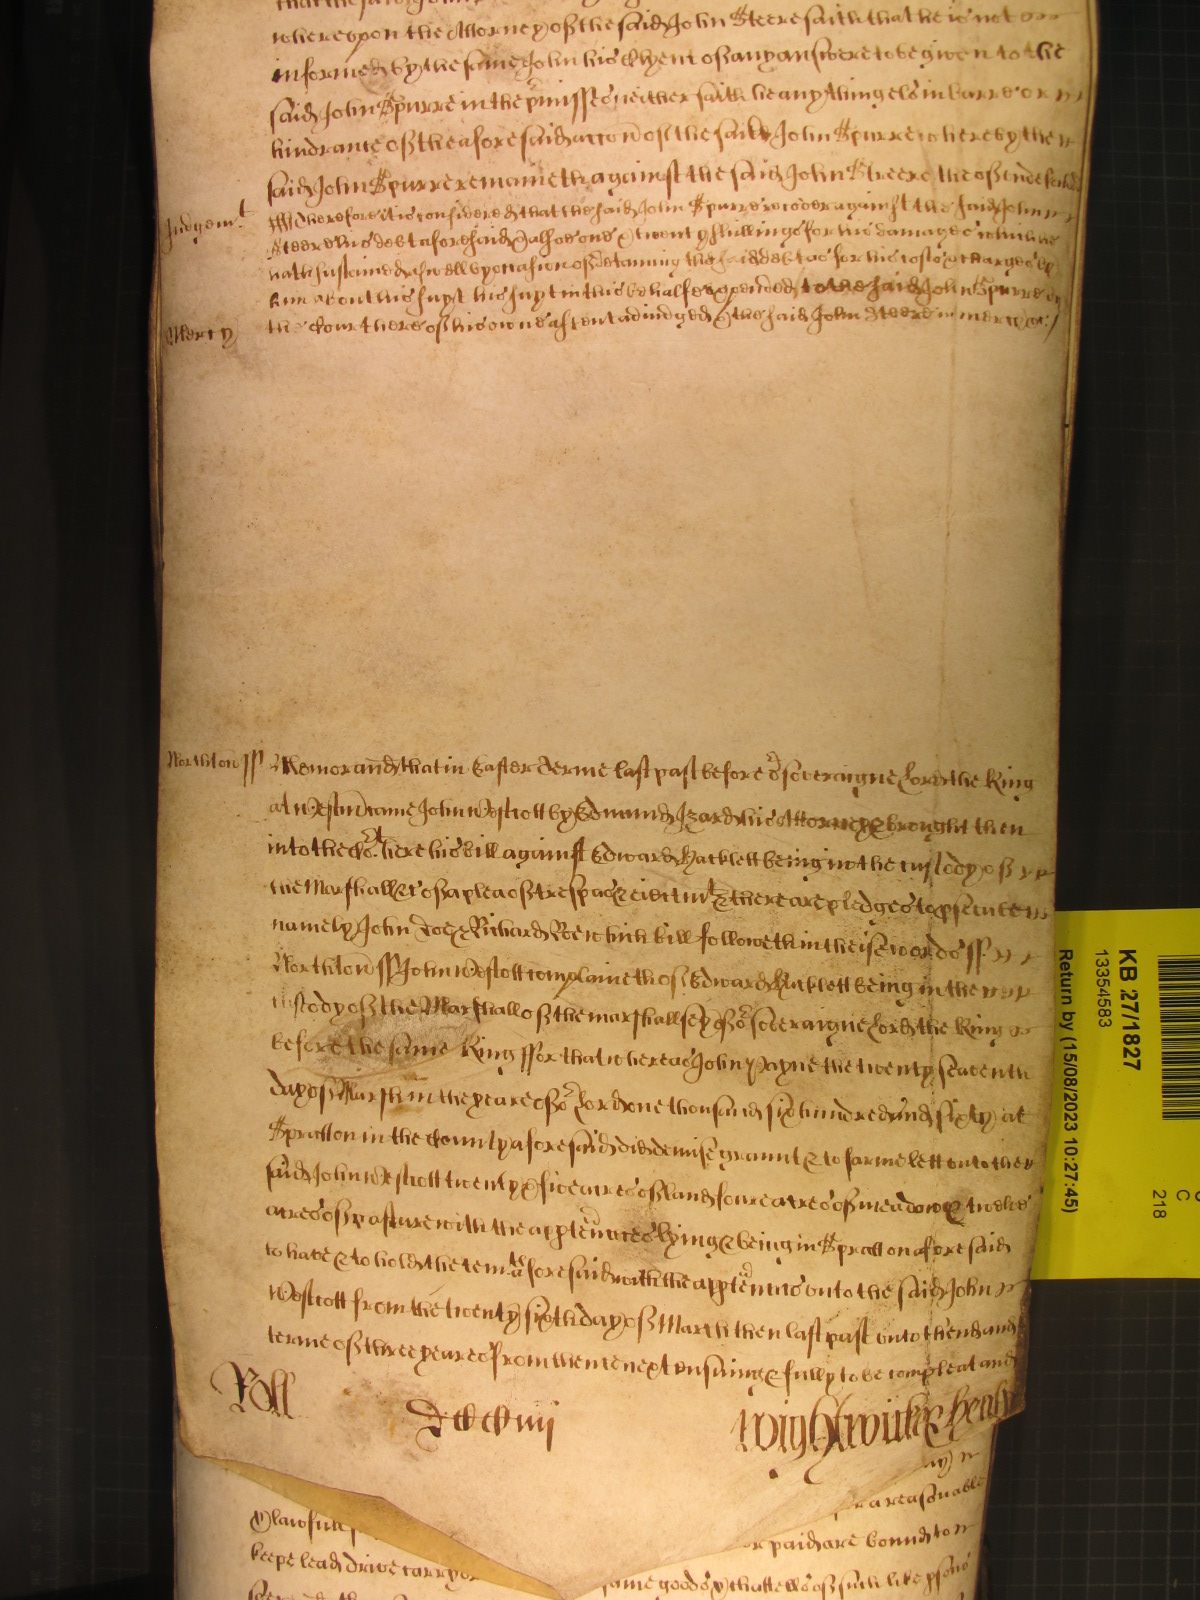 whereupon the Attorney of the said John Steere saith that he is not
informed by the same John his Clyent of any answere to be given to the
said John Spurre in the pmisses neither saith he any thing els in barre or
hindrance of the aforesaid accon of the said John Spurre whereby the
said John Spurre remaineth against the said John Steere thereof undefended
Judgemt. Wherefore it is considered that the said John Spurre recover against the said John
Steere his debt aforesaid & alsoe one & twenty shillings for his damages which he
hath sustained aswell by occasion of detaining the said debt as for his costs & charges by
him about his suyt in this behalfe expended to the said John Spurre by
Mercy the Court here of his owne assent adjudged & the said John Steere in mercy &c
Northton ss Memorand that in Easter Terme last past before or soveraigne Lord the King
at Westm came John Westcott by Edmund Izard his Attorney & brought then
into the Co:rt here his bill against Edward Hacklett being in the custody of
the Marshall &c of a plea of trespas & eiectmt & there are pledges to psecute
namely John Doe & Richard Roe which bill followeth in theise words ss
Northton ss John Westcott complaineth of Edward Hacklett being in the
custody of the Marshall of the marshallsey of or soveraigne Lord the King
before the same King ffor that whereas John Payne the twenty seaventh
day of March in the yeare of or Lord one thousand six hundred and sixty at
Spratton in the County aforesaid did demise graunt & to farme lett unto the
said John Westcott twenty & five acres of land foure acres of meadow & twelve
acres of pasture with the apptenncs lying & being in Spratton aforesaid
to have & to hold the temts aforesaid with the apptenncs unto the said John
Westcott from the twenty sixth day of March then last past unto thend and
terme of three yeares from thence next ensuing & fully to be compleat and
Roll Dcccciiij Wightwicke & Henly
& lawfull
a reasonable
keepe lead drive carry or paid are bound to
same goods & chattells of such like psons
KB 27/1827
13354583
Return by (15/08/2023 10:27:45)
C
218